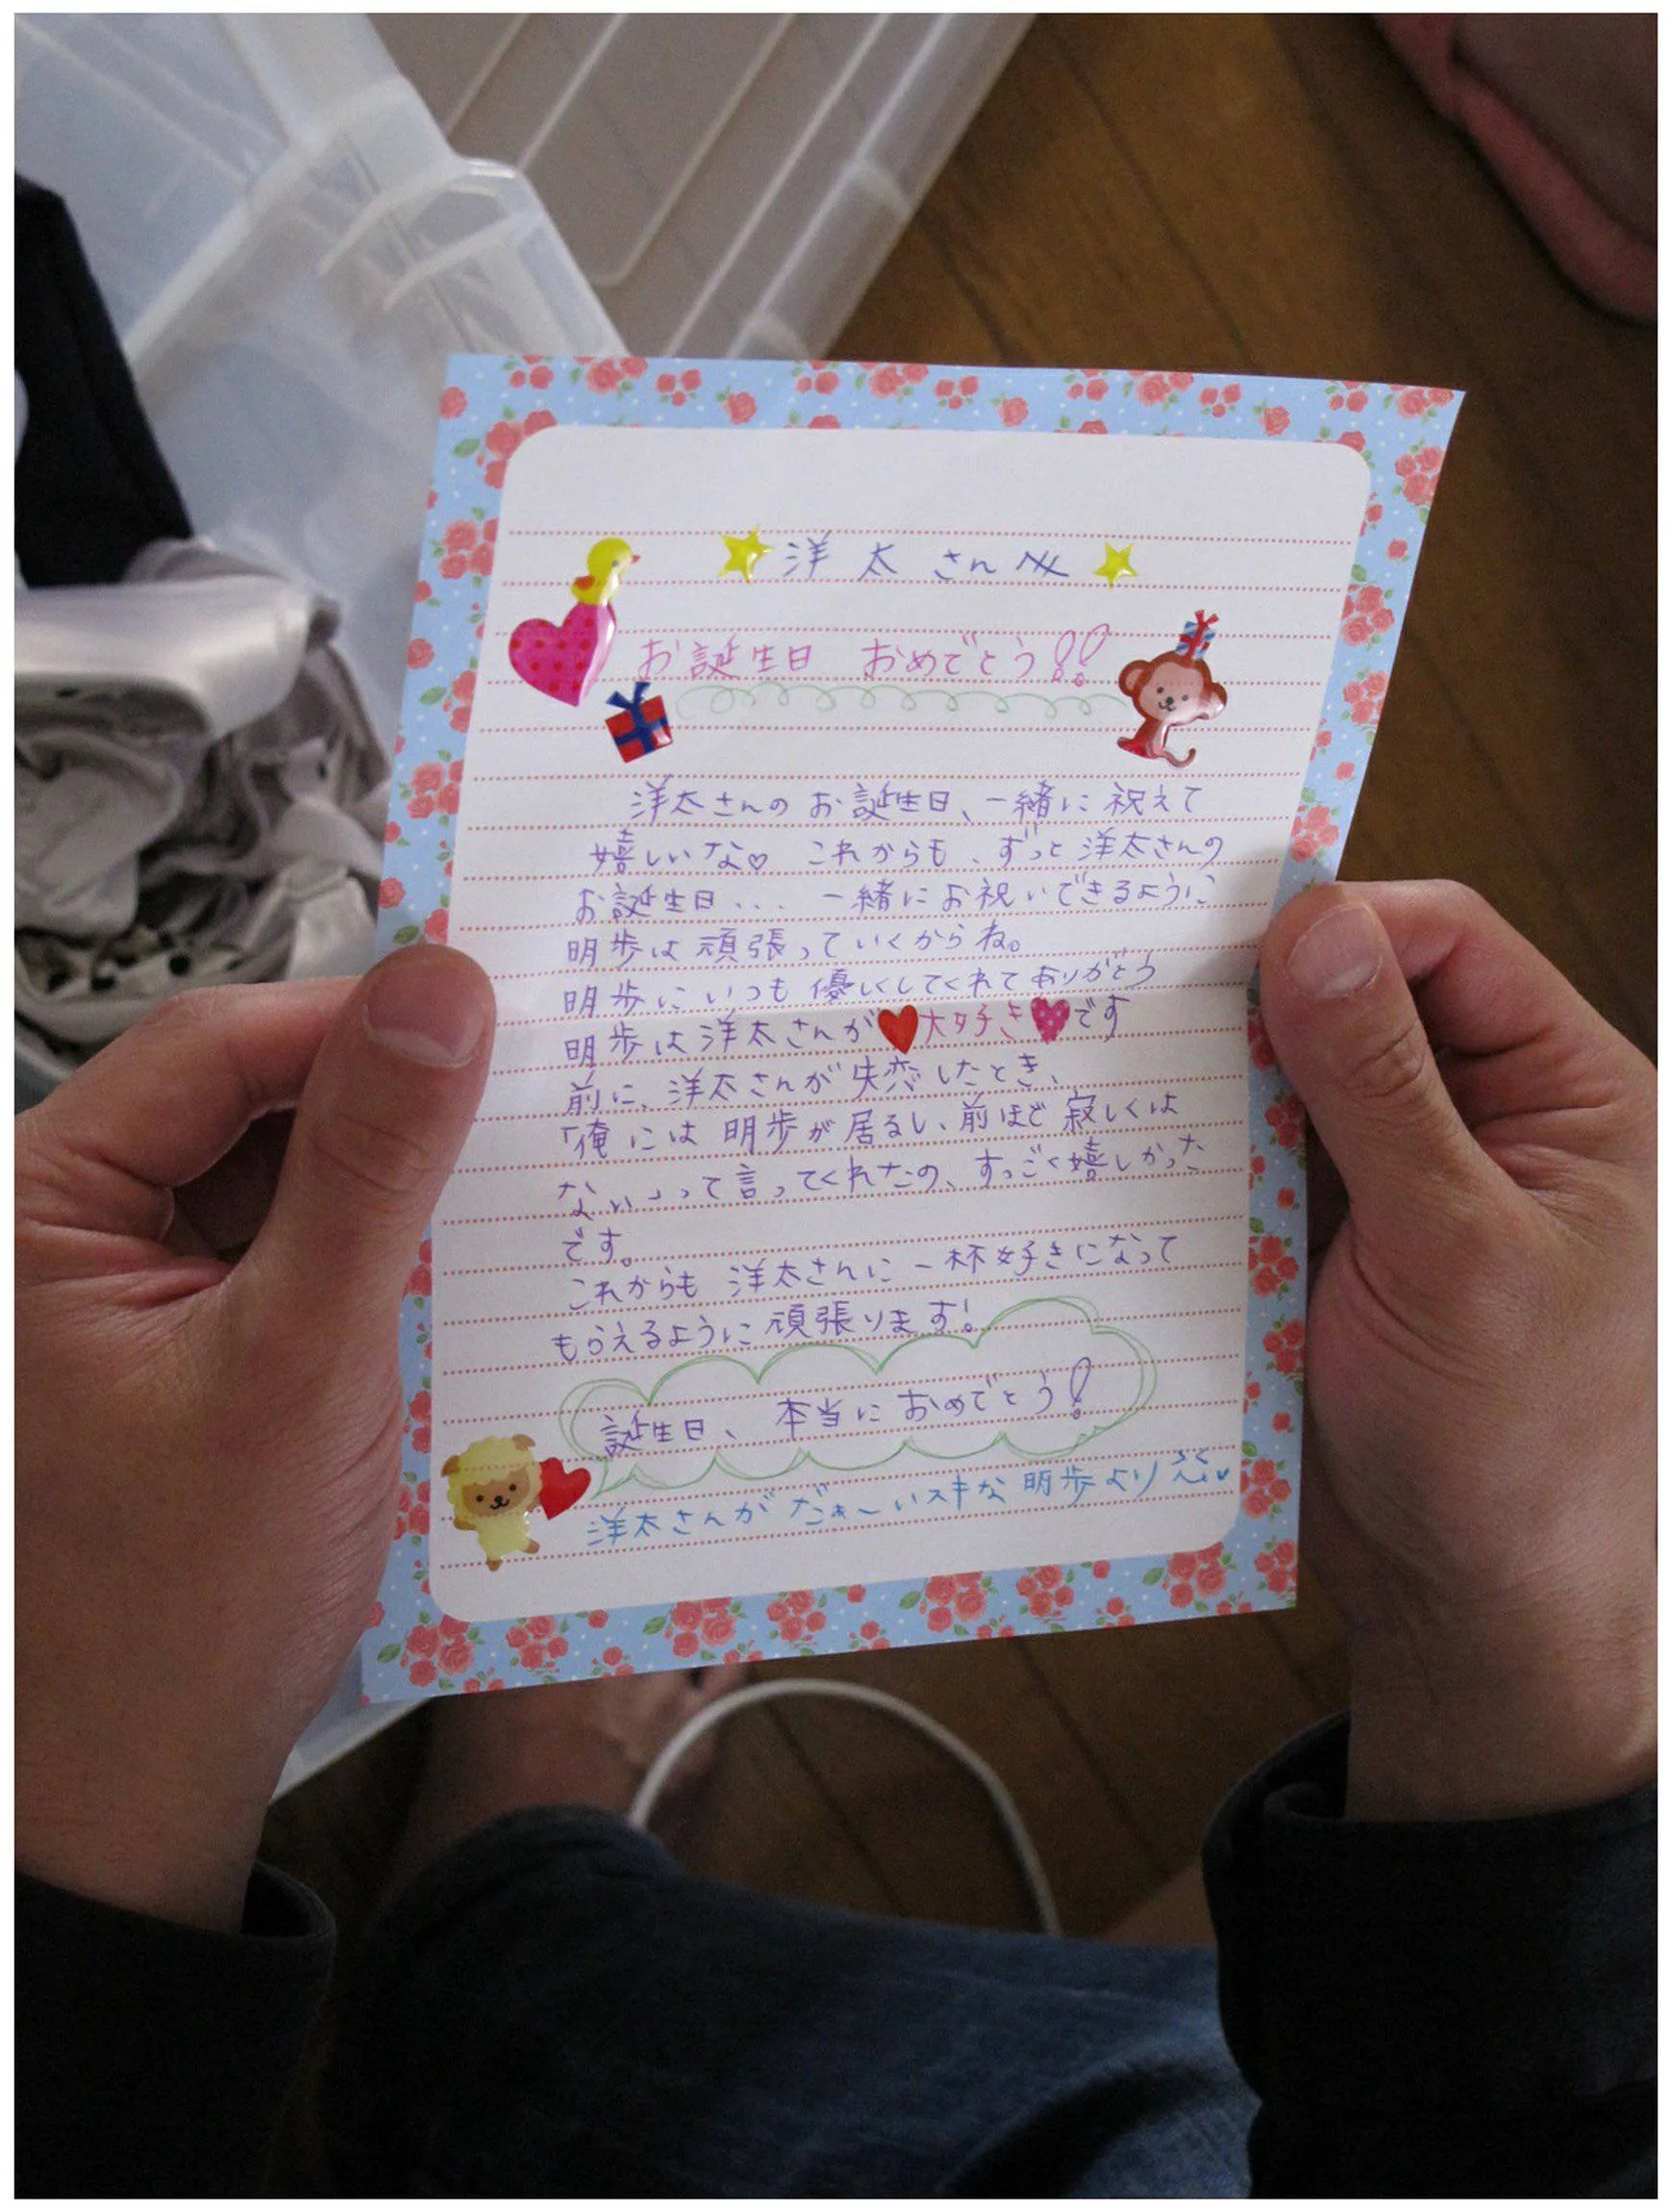 洋太さんへ
お誕生日 おめでとう!!
洋太さんの お誕生日、一緒に 祝えて
嬉しいな♡ これからも、ずっと 洋太さんの
お誕生日... 一緒にお祝いできるように
明歩は 頑張っていくからね。
明歩にいつも 優しくしてくれてありがとう
明歩は洋太さんが大好きです
前に、洋太さんが失恋したとき、
「俺には 明歩が居るし、前ほど 寂しくは
ない」って言ってくれたの、すっごく嬉しかった
です。
これからも 洋太さんに一杯好きになって
もらえるように頑張ります!
誕生日、本当に おめでとう!
洋太さんが だぁーいスキな 明歩より